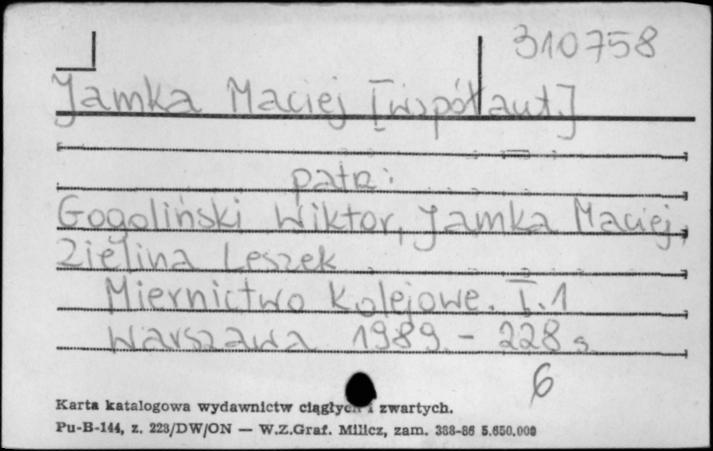 310758
Jamka Maciej [współaut.]
patrz:
Gogoliński Wiktor, Jamka Maciej,
Zielina Leszek
Miernictwo Kolejowe. T.1
Warszawa 1989. - 228 s.
6
Karta katalogowa wydawnictw ciągłych i zwartych.
Pu-B-144, z. 223/DW/ON — W.Z.Graf. Milicz, zam. 388-86 5.650.000